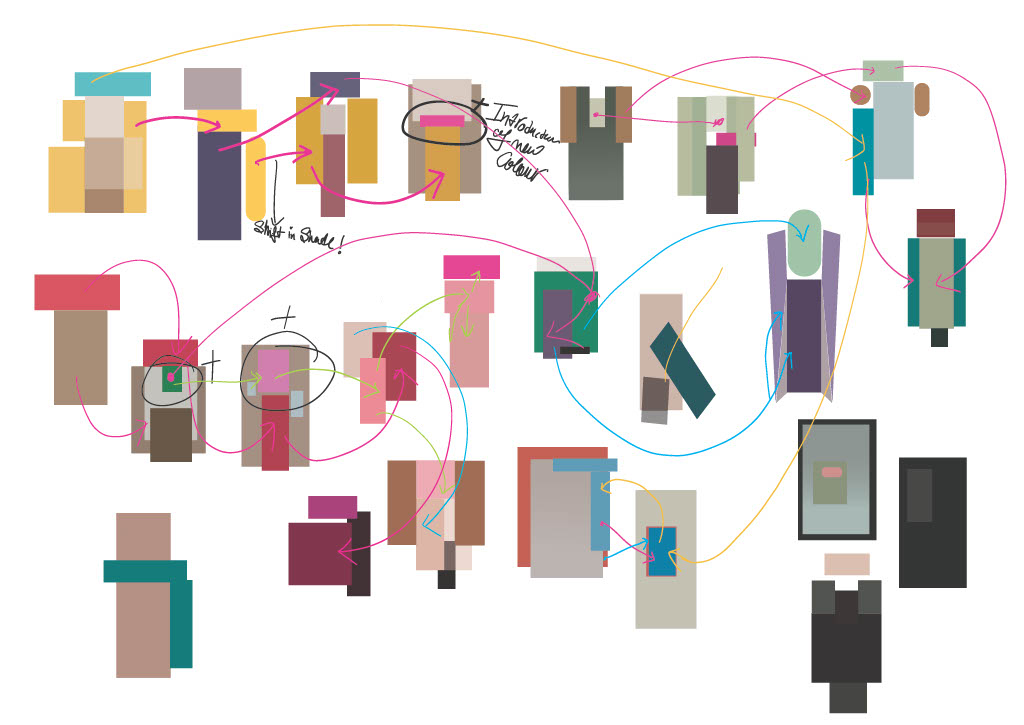 + Introduction
of new
Colour
Shift in Shade!
+
+